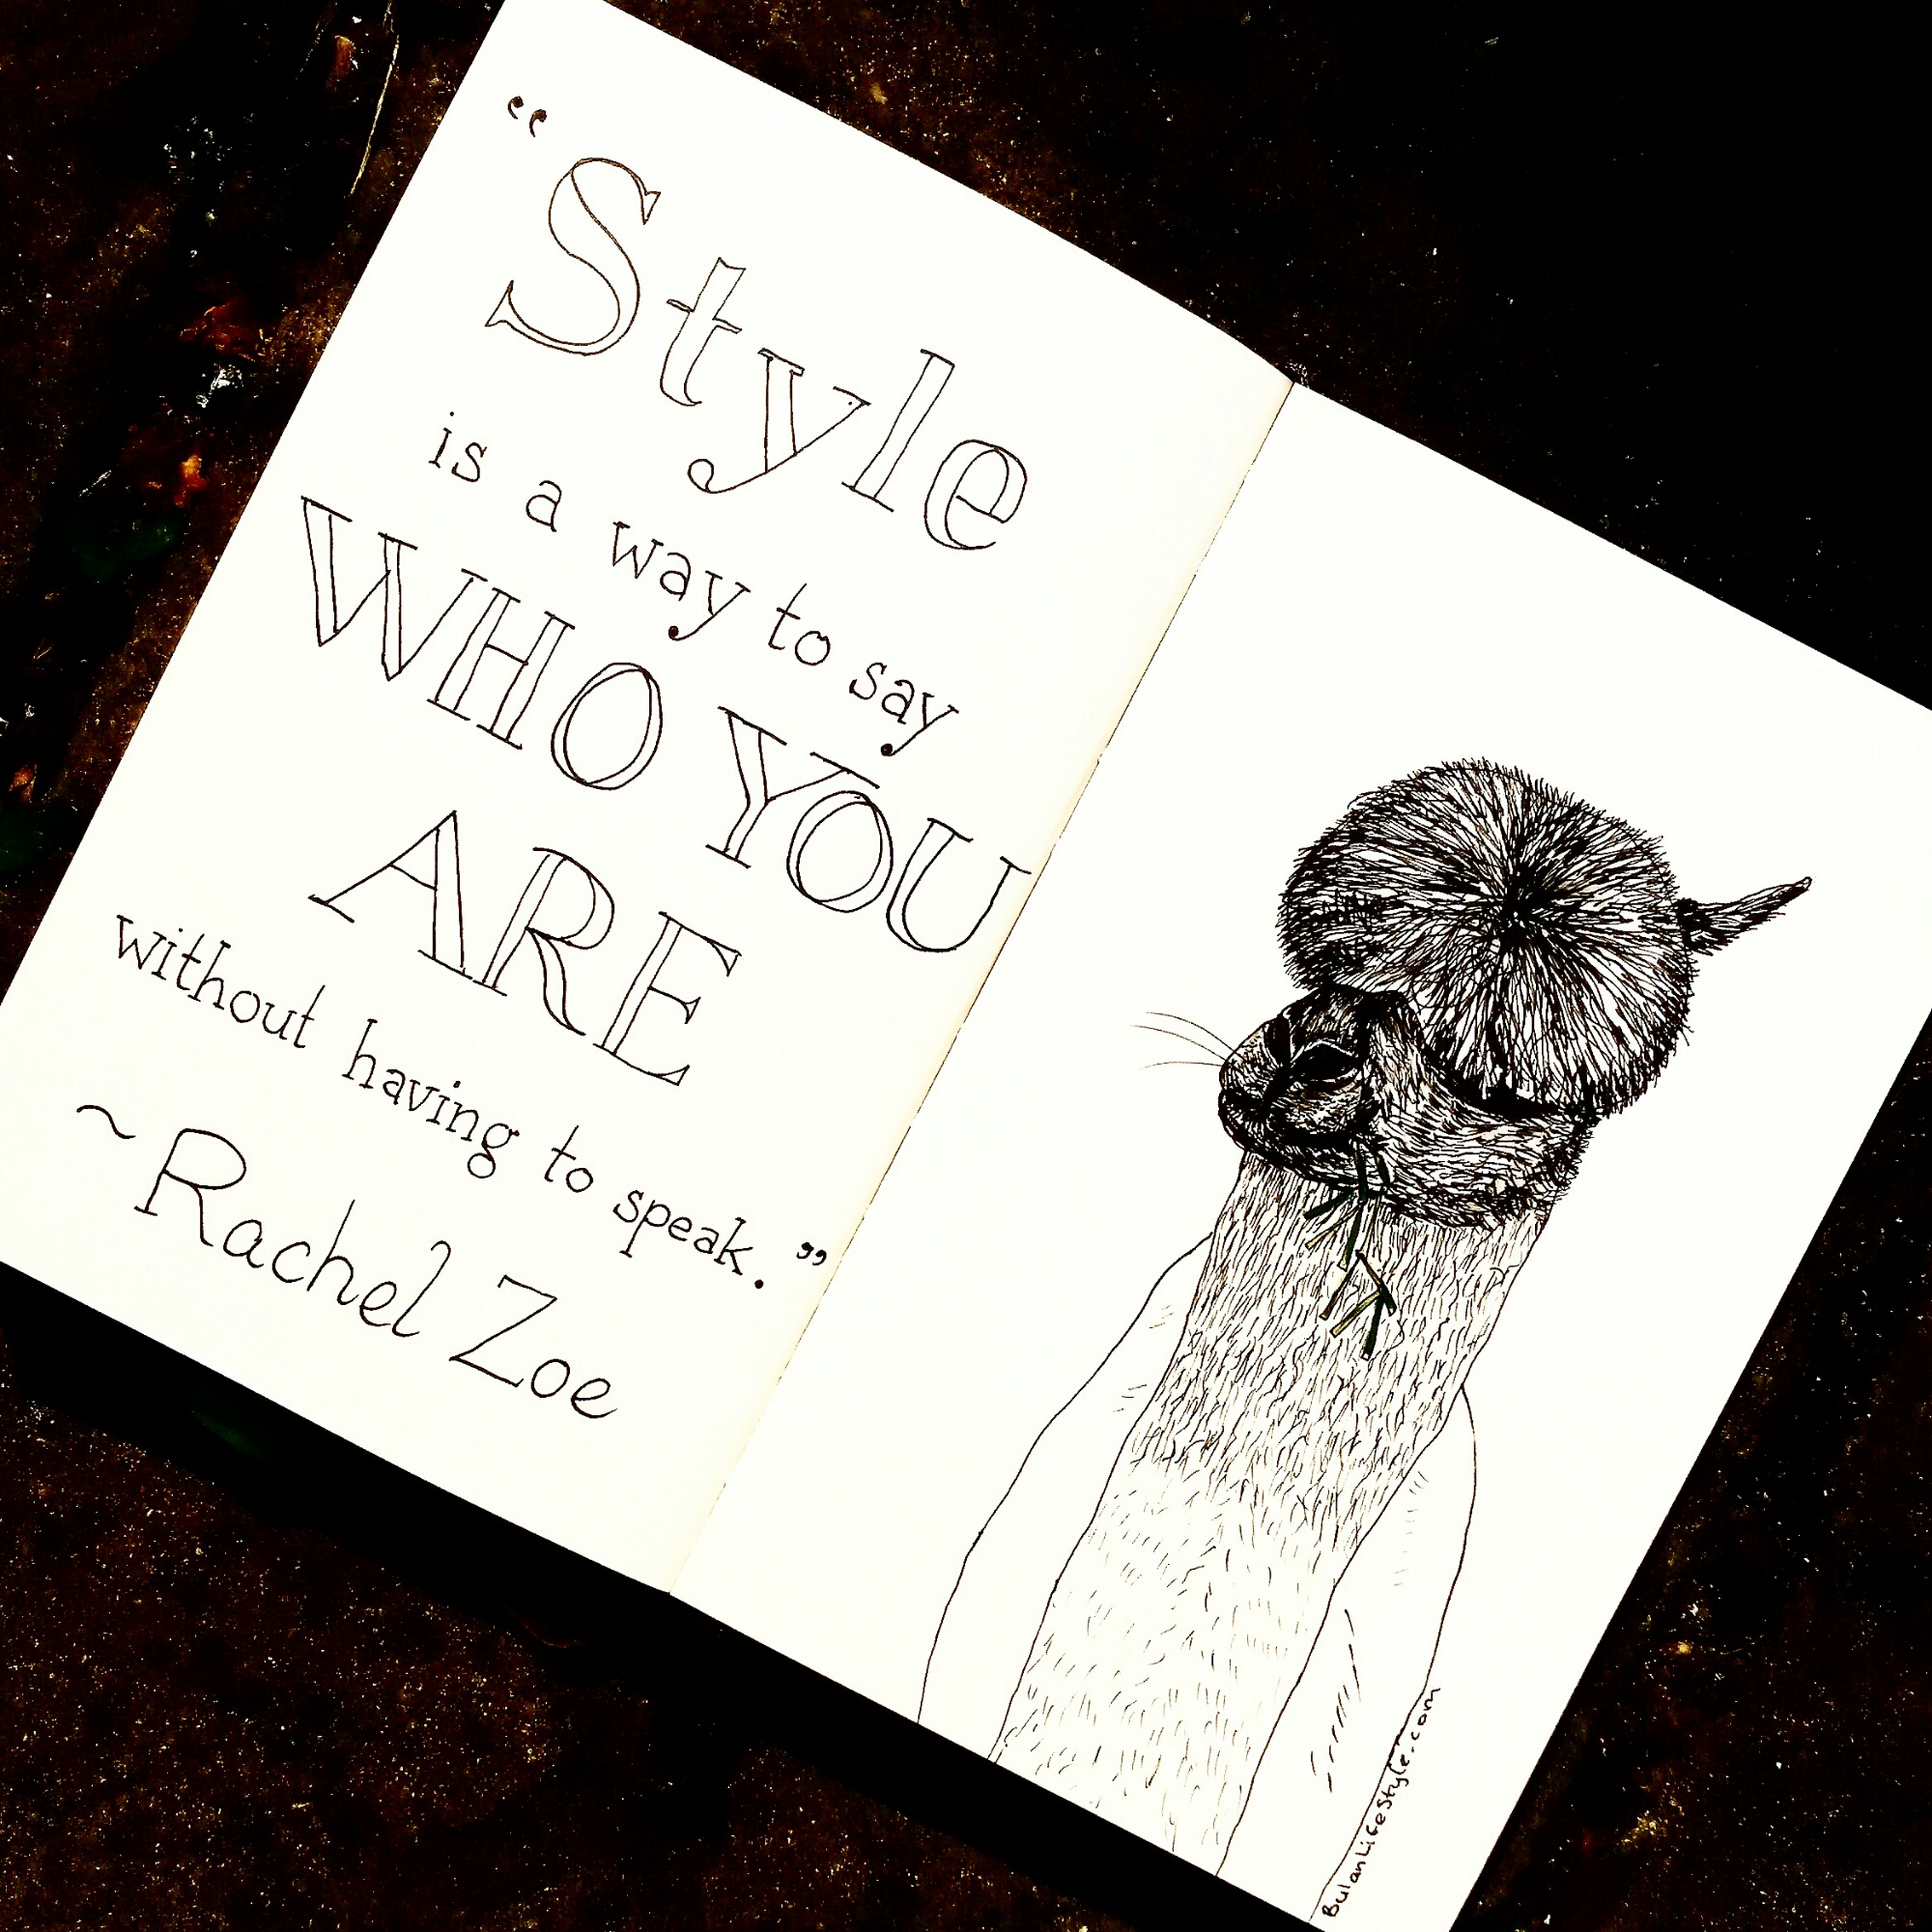 “Style
is a way to say
WHO YOU
ARE
without having to speak.”
~ Rachel Zoe
BulanLifeStyle.com